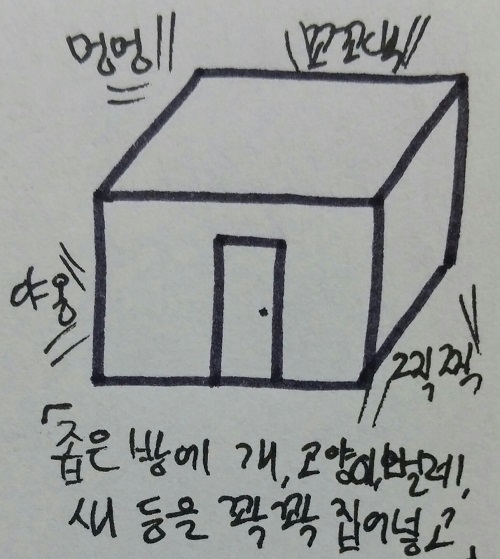 멍멍
꼬꼬댁
야옹
찍찍
「좁은 방에 개, 고양이, 벌레,
새 등을 꽉꽉 집어넣고,